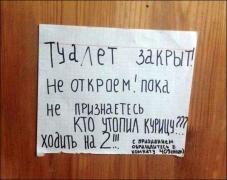 Туалет закрыт!
не откроем! пока
не признаетесь
кто утопил курицу???
ходить на 2!!!
с признанием
обращайтесь в
комнату